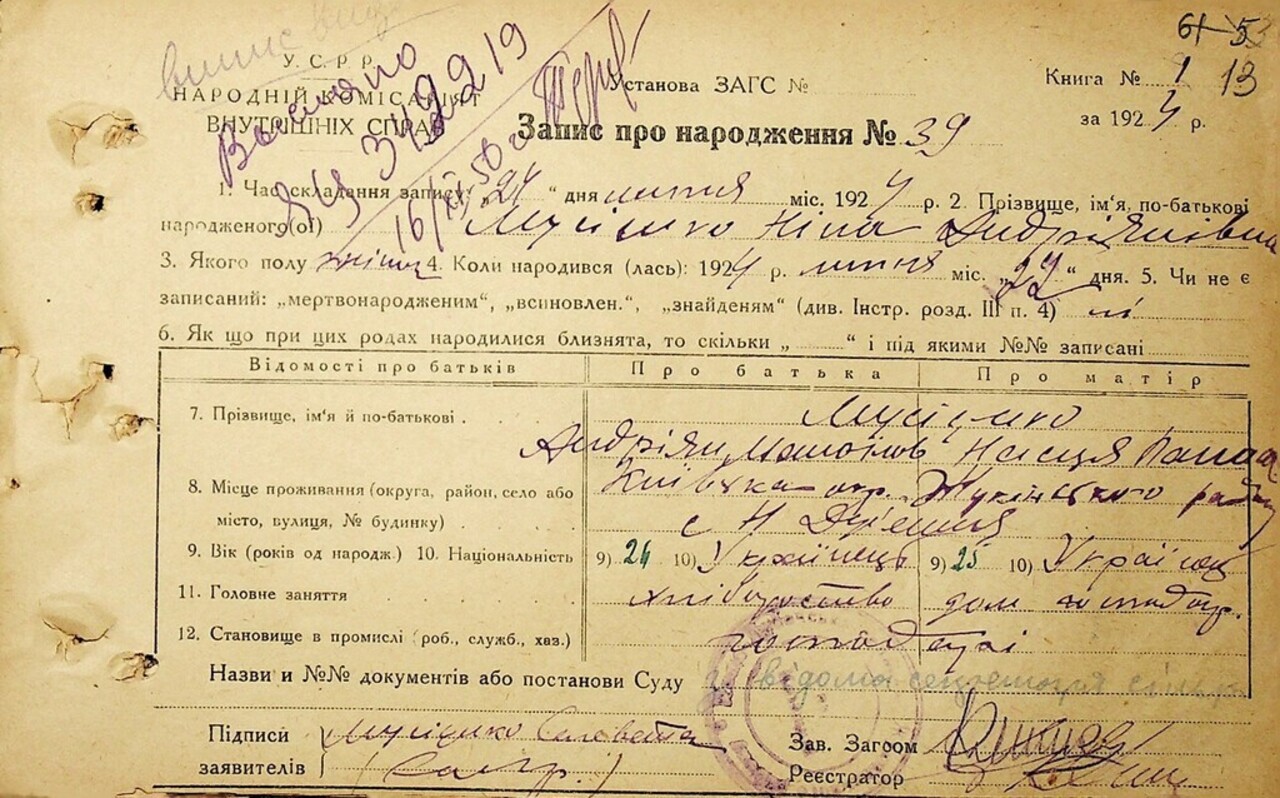 61-53
13
У.С.Р.Р.
НАРОДНІЙ КОМІСАРІЯТ
ВНУТРІШНІХ СПРАВ
Установа ЗАГС №
Книга № 1
за 1924 р.
Видано
16/XII 50 г.
Запис про народження № 39
1. Час складання запису: „24“ дня липня міс. 1924 р. 2. Прізвище, ім'я, по-батькові
народженого(ої) Мусієнко Ніна Андріянівна
3. Якого полу жіноч 4. Коли народився (лась): 1924 р. липня міс. „22“ дня. 5. Чи не є
записаний: „мертвонародженим“, „всиновлен.“, „знайденям“ (див. Інстр. розд. III п. 4) ні
6. Як що при цих родах народилися близнята, то скільки „ “ і під якими №№ записані
Відомості про батьків Про батька Про матір
7. Прізвище, ім'я й по-батькові . Мусієнко
Андріян Настя Панас
8. Місце проживання (округа, район, село або Київська окр. Жукинського району
місто, вулиця, № будинку) . с. Н
9. Вік (років од народж.) 10. Національність 9) 24 10) Українець 9) 25 10) Україн
11. Головне заняття хліборобство дом господар.
12. Становище в промислі (роб., служб., хаз.) господарі
Назви и №№ документів або постанови Суду відома секретаря сільр
Підписи Мусієнко
заявителів
Зав. Загсом
Реєстратор